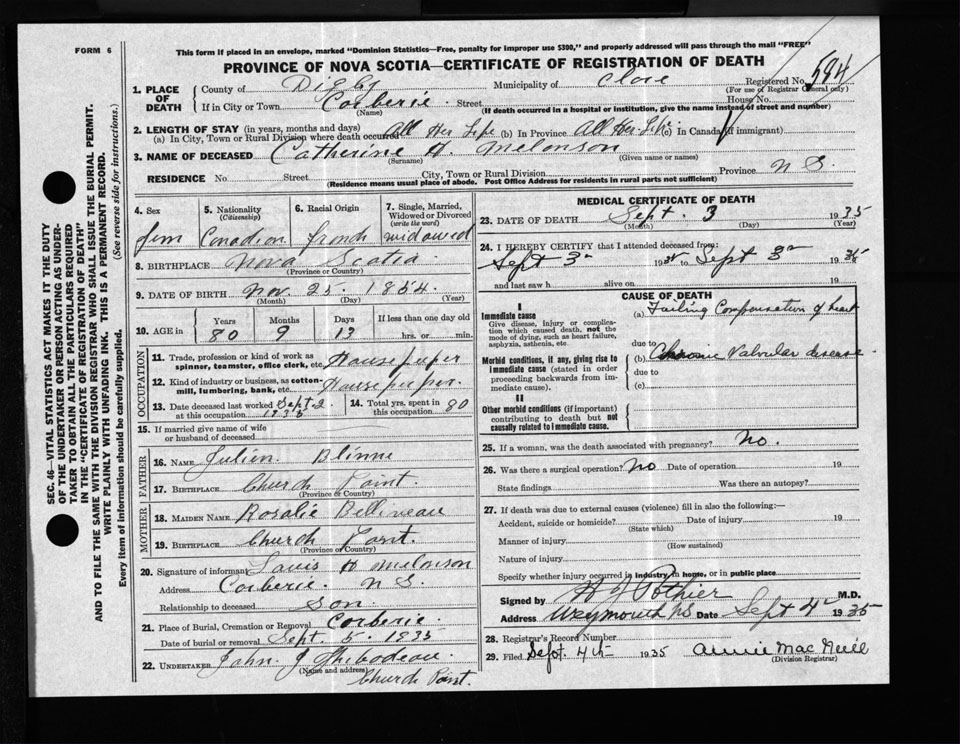 FORM 6
This form if placed in an envelope, marked "Dominion Statistics—Free, penalty for improper use $300," and properly addressed will pass through the mail "FREE"
PROVINCE OF NOVA SCOTIA—CERTIFICATE OF REGISTRATION OF DEATH
Registered No. 594
(For use of Registrar General only)
1. PLACE OF DEATH
County of Digby Municipality of Clare
If in City or Town Corberie Street House No.
(Name) (If death occurred in a hospital or institution, give the name instead of street and number)
2. LENGTH OF STAY (in years, months and days)
(a) In City, Town or Rural Division where death occurred All Her Life (b) In Province All Her Life (c) In Canada (if immigrant)
3. NAME OF DECEASED Catherine H. Melonson
(Surname) (Given name or names)
RESIDENCE No. Street City, Town or Rural Division Province N S.
(Residence means usual place of abode. Post Office Address for residents in rural parts not sufficient)
4. Sex
Fem
5. Nationality
(Citizenship)
Canadian
6. Racial Origin
french
7. Single, Married, Widowed or Divorced
(write the word)
widowed
8. BIRTHPLACE Nova Scotia
(Province or Country)
9. DATE OF BIRTH Nov. 25. 1854.
(Month) (Day) (Year)
10. AGE in
Years Months Days If less than one day old
80 9 13 hrs. or min.
OCCUPATION
11. Trade, profession or kind of work as spinner, teamster, office clerk, etc.
12. Kind of industry or business, as cotton-mill, lumbering, bank, etc.
13. Date deceased last worked at this occupation Sept. 2. 1835
14. Total yrs. spent in this occupation 80
15. If married give name of wife or husband of deceased
FATHER
16. NAME Julien Blinne
17. BIRTHPLACE Church Point.
(Province or Country)
MOTHER
18. MAIDEN NAME Rosalie Bellineau
19. BIRTHPLACE Church Point.
(Province or Country)
20. Signature of informant Louis H Melonson
Address Corberie. N S.
Relationship to deceased son.
21. Place of Burial, Cremation or Removal Corberie.
Date of burial or removal Sept. 5. 1835
22. UNDERTAKER John J Thibodeau.
(Name and address)
Church Point.
MEDICAL CERTIFICATE OF DEATH
23. DATE OF DEATH Sept. 3 1935
(Month) (Day) (Year)
24. I HEREBY CERTIFY that I attended deceased from:
Sept 3rd 1935 to Sept 3rd 1935
and last saw h alive on 19
CAUSE OF DEATH
I
Immediate cause
Give disease, injury or complication which caused death, not the mode of dying, such as heart failure, asphyxia, asthenia, etc.
(a) Failing Compensation of heart
due to
Morbid conditions, if any, giving rise to immediate cause (stated in order proceeding backwards from immediate cause).
(b) Chronic Valvular disease.
due to
(c)
II
Other morbid conditions (if important) contributing to death but not causally related to immediate cause.
25. If a woman, was the death associated with pregnancy? No.
26. Was there a surgical operation? No Date of operation 19
State findings Was there an autopsy?
27. If death was due to external causes (violence) fill in also the following:—
Accident, suicide or homicide? Date of injury 19
(State which)
Manner of injury
(How sustained)
Nature of injury
Specify whether injury occurred in industry, in home, or in public place
Signed by Pothier M.D.
Address Weymouth NS Date Sept 4 1935
28. Registrar's Record Number
29. Filed Sept 4th 1935 Annie Mac Neill
(Division Registrar)
SEC. 46—VITAL STATISTICS ACT MAKES IT THE DUTY
OF THE UNDERTAKER OR PERSON ACTING AS UNDER-
TAKER TO OBTAIN ALL THE PARTICULARS REQUIRED
IN THE "CERTIFICATE OF REGISTRATION OF DEATH"
AND TO FILE THE SAME WITH THE DIVISION REGISTRAR WHO SHALL ISSUE THE BURIAL PERMIT.
WRITE PLAINLY WITH UNFADING INK. THIS IS A PERMANENT RECORD.
Every item of information should be carefully supplied. (See reverse side for instructions.)